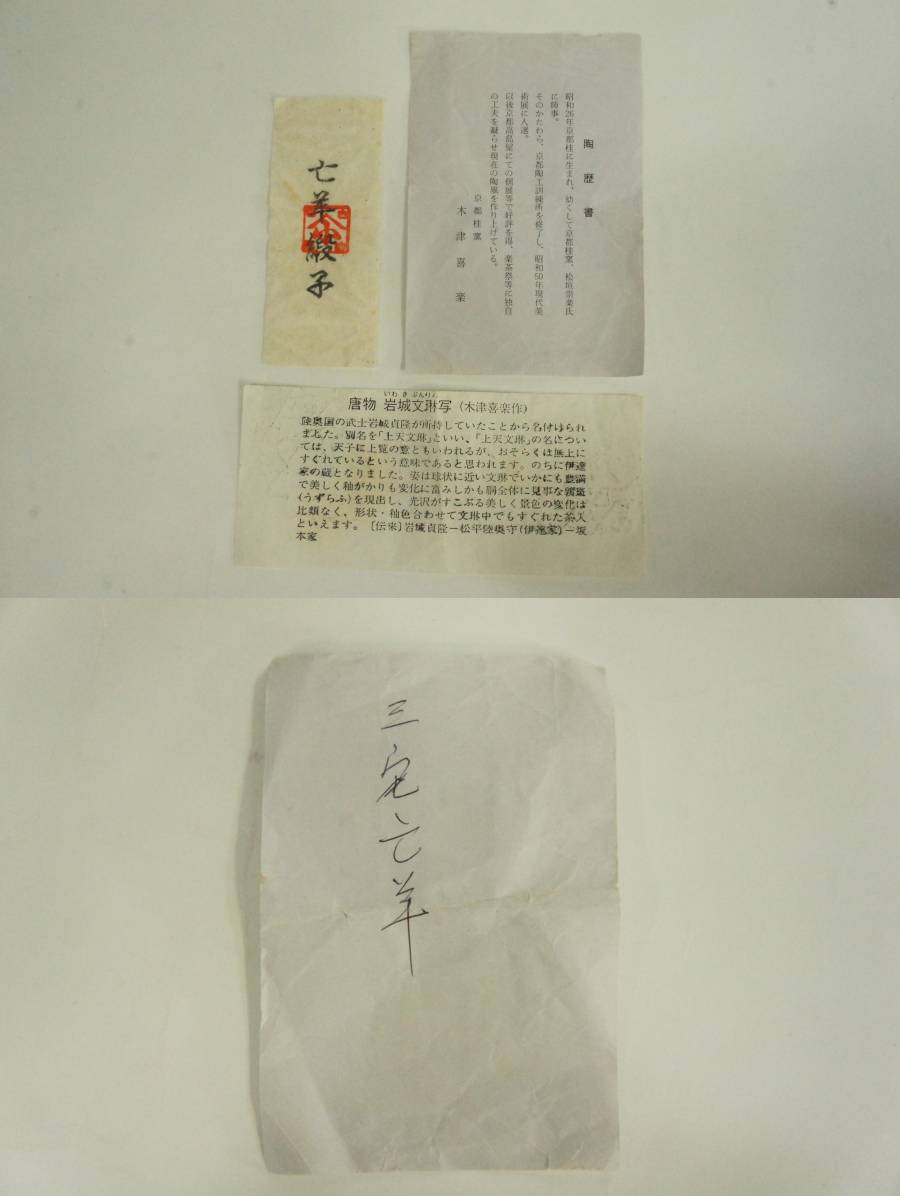 亡羊緞子
陶歴書
昭和26年京都桂に生まれ、幼くして京都桂窯、松垣崇楽氏
に師事。
そのかたわら、京都陶工訓練所を修了し、昭和50年現代美
術展に入選。
以後京都高島屋にての個展等で好評を得、楽茶祭等に独自
の工夫を凝らせ現在の陶風を作り上げている。
京都桂窯
木津喜楽
いわきぶんりん
唐物 岩城文琳写(木津喜楽作)
陸奥国の武士岩城貞隆が所持していたことから名付けられ
ました。別名を「上天文琳」といい、「上天文琳」の名につい
ては、天子に上覧の意ともいわれるが、おそらくは無上に
すぐれているという意味であると思われます。のちに伊達
家の蔵となりました。姿は球状に近い文琳でいかにも豊満
で美しく釉がかりも変化に富みしかも胴全体に見事な鶉斑
(うずらふ)を現出し、光沢がすこぶる美しく景色の変化は
比類なく、形状・釉色合わせて文琳中でもすぐれた茶入
といえます。〔伝来〕岩城貞隆ー松平陸奥守(伊達家)ー坂
本家
三宅亡羊